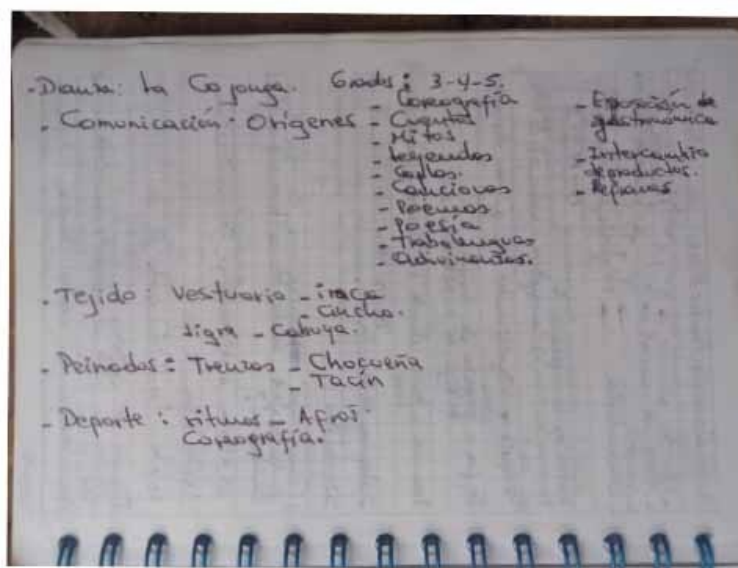 - Danza: La Cojonga. Grados: 3-4-5.
- Coreografía
- Comunicación - Orígenes - Cuentos
- Mitos
- Leyendas
- Coplas.
- Canciones
- Poemas
- Poesía
- Trabalenguas
- Adivinanzas.
- Exposición de
gastronómica
- Intercambio
de productos.
- Refranes
- Tejido: Vestuario - iraca
- Cincho.
Jigra - Cabuya.
- Peinados: Trenzas - Choqueña
- Tacín
- Deporte: ritmos - Afros
Coreografía.